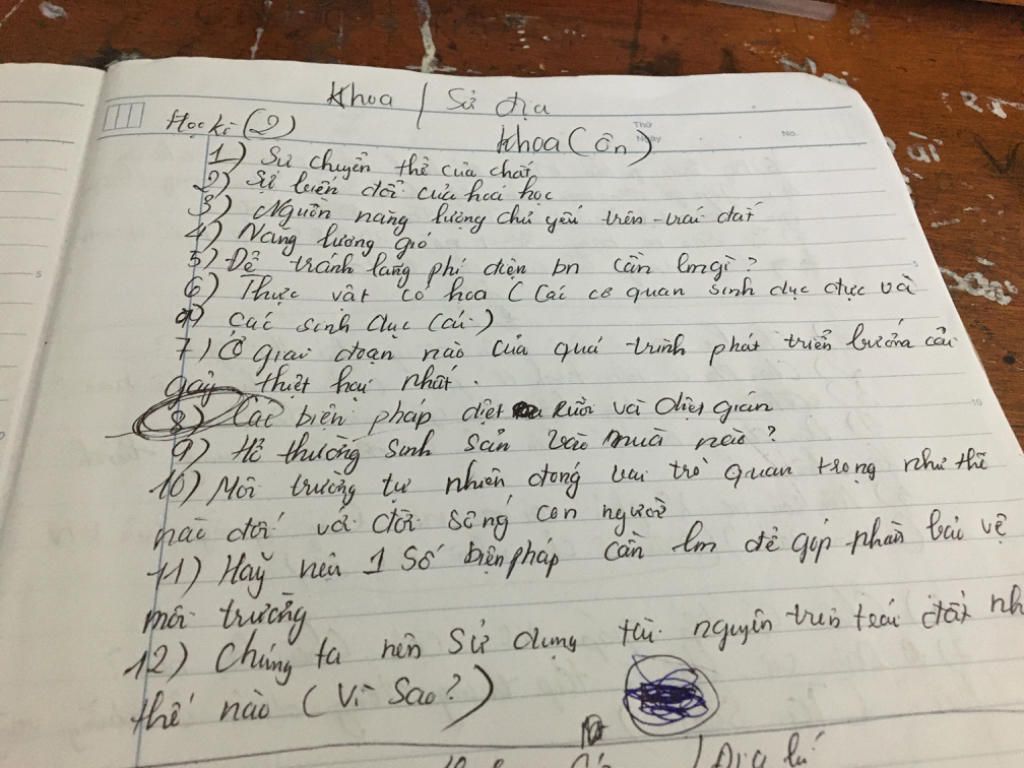 Khoa / Sử địa
Học kì (2)
Khoa (Ôn)
1) Sự chuyển thể của chất
2) Sự biến đổi của hoá học
3) Nguồn năng lượng chủ yếu trên trái đất
4) Năng lượng gió
5) Để tránh lãng phí điện bn cần lmgì?
6) Thực vật có hoa (các cơ quan sinh dục đực và
các sinh dục (cái)
7) Ở giai đoạn nào của quá trình phát triển bướm cải
gây thiệt hại nhất.
8) Các biện pháp diệt ruồi và diệt gián
9) Hổ thường sinh sản vào mùa nào?
10) Môi trường tự nhiên đóng vai trò quan trọng như thế
nào đối với đời sống con người
11) Hãy nêu 1 số biện pháp cần lm để góp phần bảo vệ
môi trường
12) Chúng ta nên sử dụng tài nguyên trên trái đất nh
thế nào (Vì Sao?)
/ Địa lí